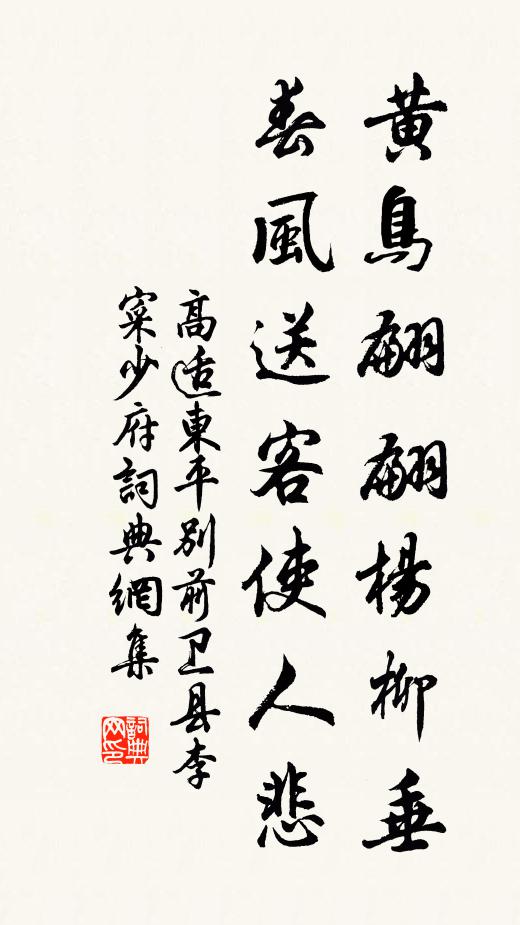 黄鳥翩翩楊柳垂
春風送客使人悲
高适東平別前卫县李
寀少府詞典網集
詞典
网印